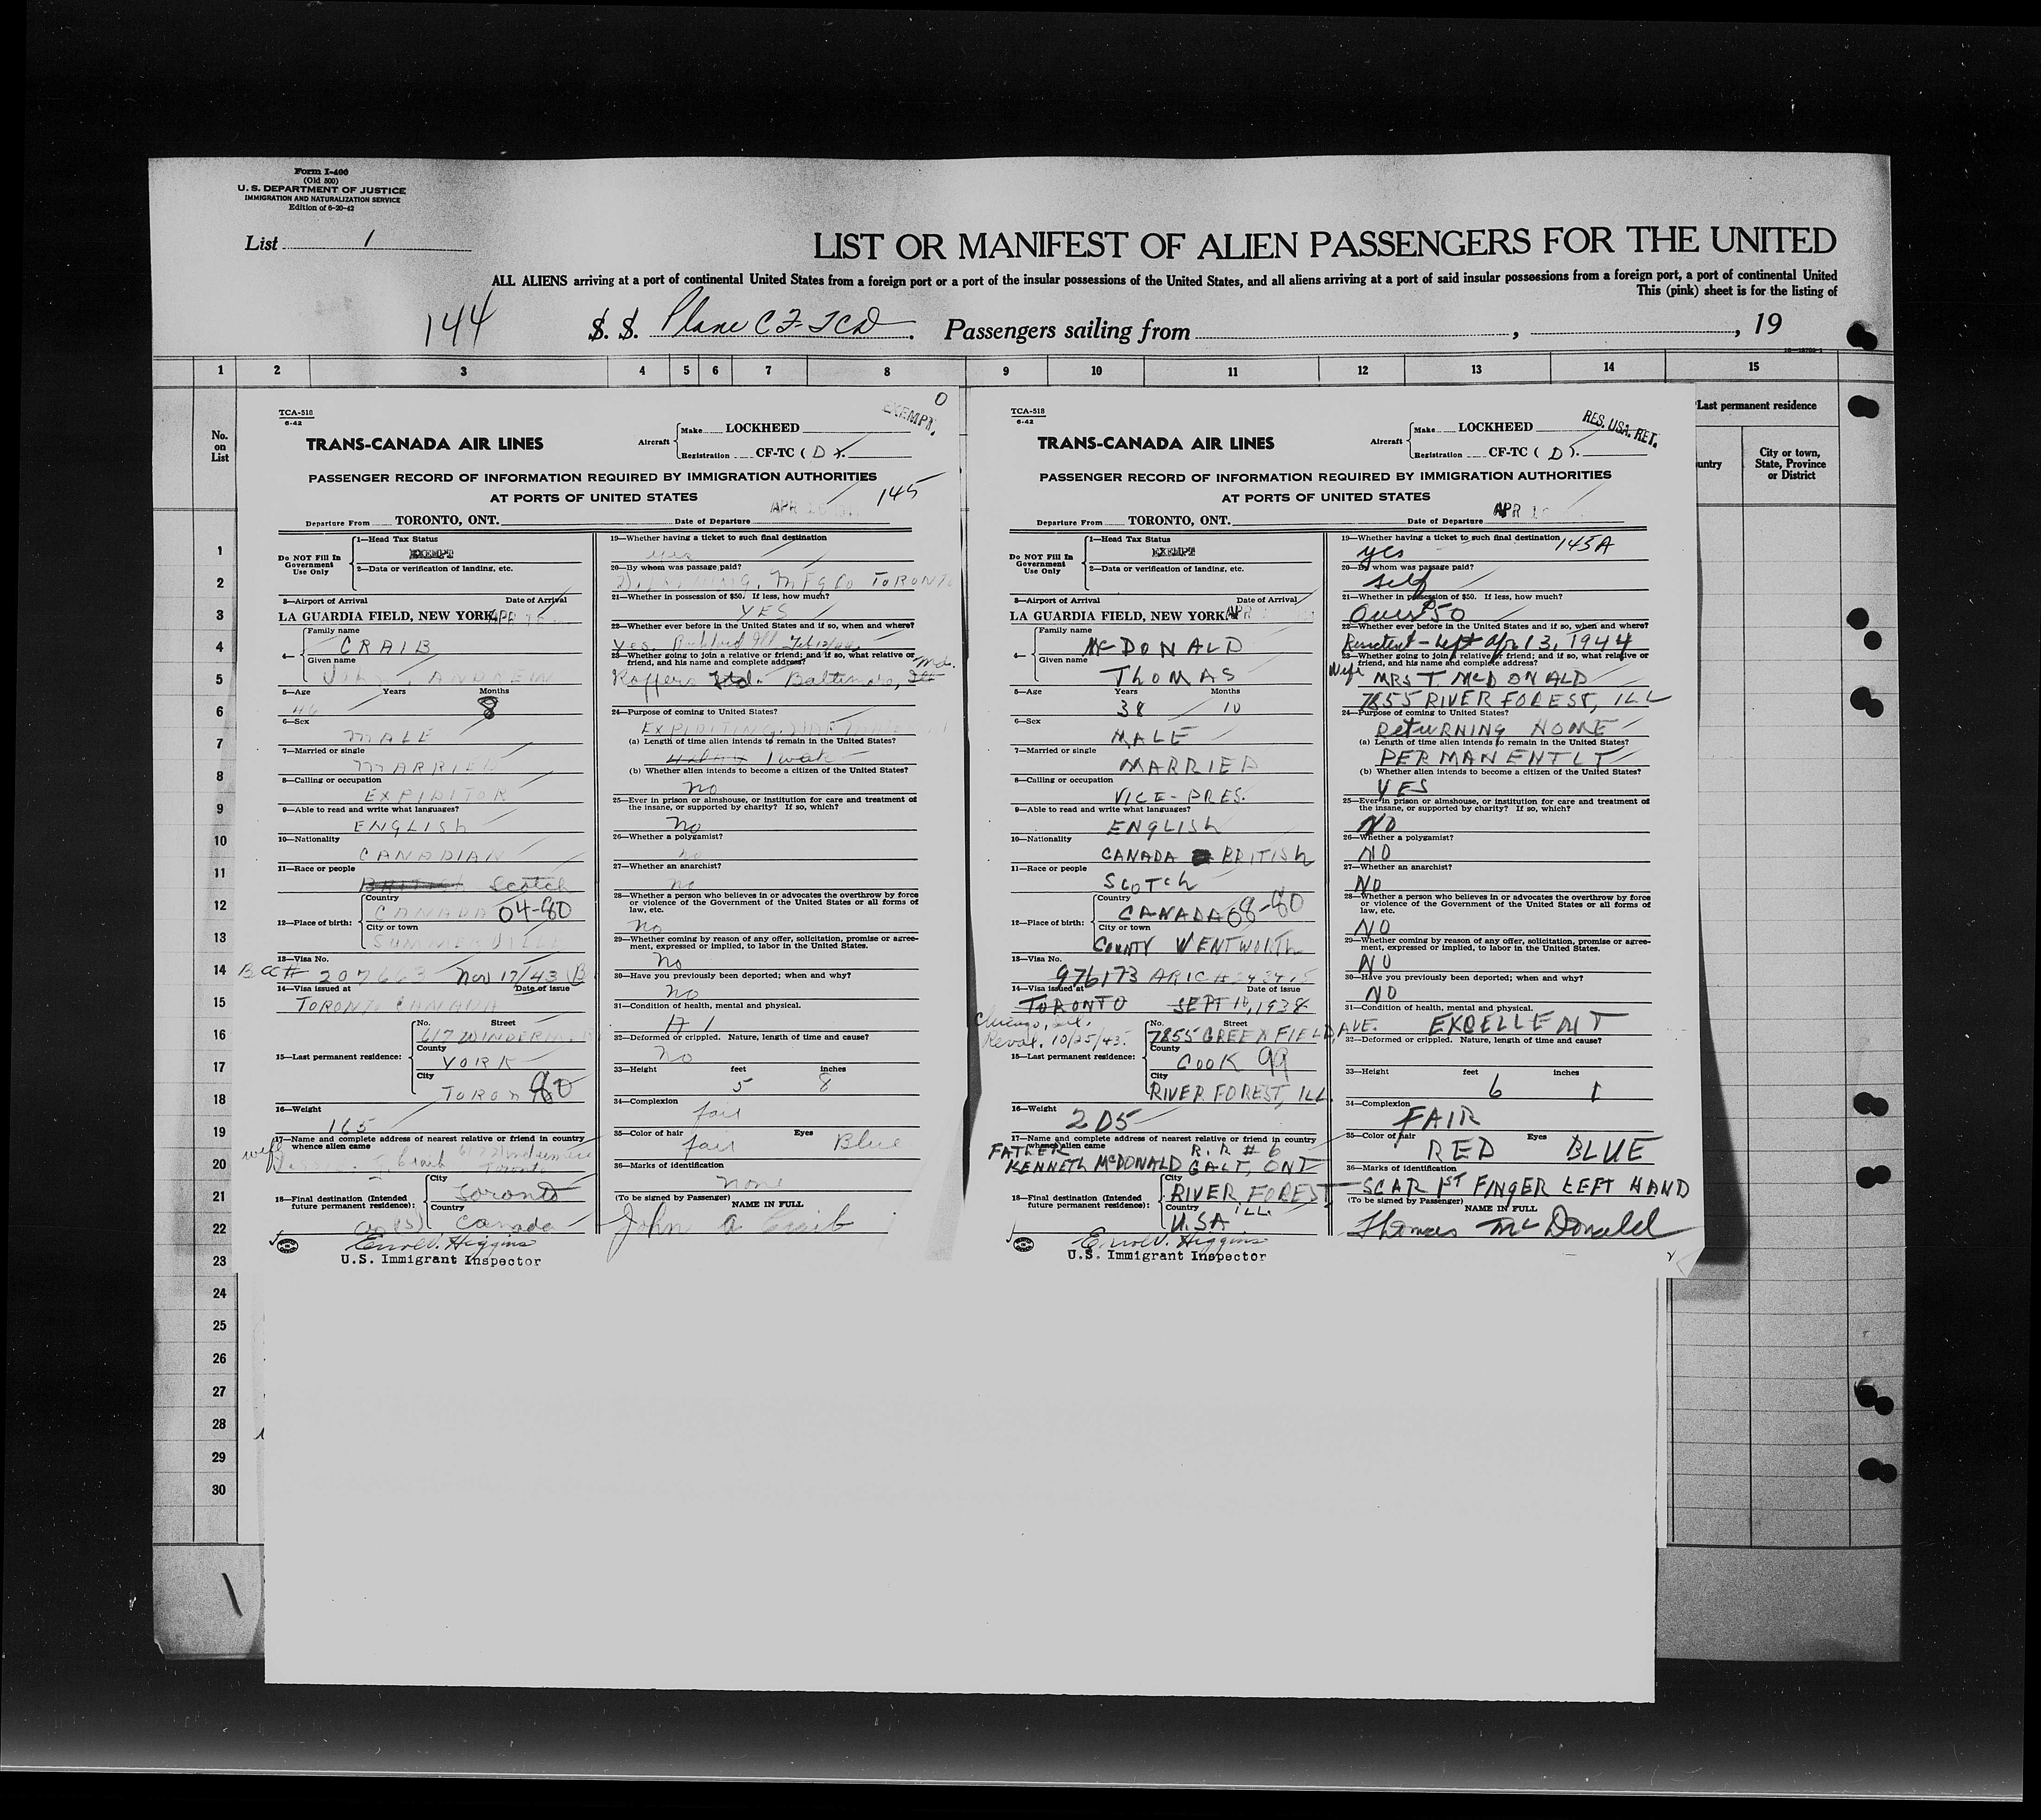 Form I-400
(Old 500)
U. S. DEPARTMENT OF JUSTICE
IMMIGRATION AND NATURALIZATION SERVICE
Edition of 6-20-42
List 1
LIST OR MANIFEST OF ALIEN PASSENGERS FOR THE UNITED
ALL ALIENS arriving at a port of continental United States from a foreign port or a port of the insular possessions of the United States, and all aliens arriving at a port of said insular possessions from a foreign port, a port of continental United
This (pink) sheet is for the listing of
144 S. S. Plane CF-TCD. Passengers sailing from , , 19
1 2 3 4 5 6 7 8 9 10 11 12 13 14 15
No. on List
Last permanent residence
City or town, State, Province or District
1
2
3
4
5
6
7
8
9
10
11
12
13
14
15
16
17
18
19
20
21
22
23
24
25
26
27
28
29
30
TCA-518
6-42
0
EXEMPT.
TRANS-CANADA AIR LINES
Aircraft Make LOCKHEED
Registration CF-TC ( D ).
PASSENGER RECORD OF INFORMATION REQUIRED BY IMMIGRATION AUTHORITIES
AT PORTS OF UNITED STATES
145
Departure From TORONTO, ONT. Date of Departure APR
Do NOT Fill In Government Use Only
1—Head Tax Status
EXEMPT
2—Data or verification of landing, etc.
3—Airport of Arrival Date of Arrival
LA GUARDIA FIELD, NEW YORK APR
4— Family name
CRAIB
Given name
JOHN ANDREW
5—Age Years Months
46 8
6—Sex
MALE
7—Married or single
MARRIED
8—Calling or occupation
EXPIDITOR
9—Able to read and write what languages?
ENGLISH
10—Nationality
CANADIAN
11—Race or people
BRITISH Scotch
12—Place of birth: Country
CANADA 04-80
City or town
SUMMERVILLE
13—Visa No.
Nov 17/43 B
14—Visa issued at Date of issue
TORONTO CANADA
15—Last permanent residence: No. Street
617 WINDERM
County
YORK
City
TORONTO 80
16—Weight
165
17—Name and complete address of nearest relative or friend in country whence alien came
wife Craib 617 Windermere
Toronto
18—Final destination (Intended future permanent residence): City
Toronto
Country
Canada
Errol V. Higgins
U.S. Immigrant Inspector
19—Whether having a ticket to such final destination
yes
20—By whom was passage paid?
MFG Co TORONTO
21—Whether in possession of $50. If less, how much?
YES
22—Whether ever before in the United States and if so, when and where?
Yes. Rockford Ill. Feb
23—Whether going to join a relative or friend; and if so, what relative or friend, and his name and complete address?
Koppers Ltd. Baltimore, Md.
24—Purpose of coming to United States?
EXPIDITING
(a) Length of time alien intends to remain in the United States?
1 week
(b) Whether alien intends to become a citizen of the United States?
no
25—Ever in prison or almshouse, or institution for care and treatment of the insane, or supported by charity? If so, which?
No
26—Whether a polygamist?
no
27—Whether an anarchist?
no
28—Whether a person who believes in or advocates the overthrow by force or violence of the Government of the United States or all forms of law, etc.
no
29—Whether coming by reason of any offer, solicitation, promise or agreement, expressed or implied, to labor in the United States.
no
30—Have you previously been deported; when and why?
no
31—Condition of health, mental and physical.
32—Deformed or crippled. Nature, length of time and cause?
no
33—Height feet inches
5 8
34—Complexion
fair
35—Color of hair Eyes
fair Blue
36—Marks of identification
none
(To be signed by Passenger) NAME IN FULL
John A Craib
TCA-518
6-42
RES. USA. RET.
TRANS-CANADA AIR LINES
Aircraft Make LOCKHEED
Registration CF-TC ( D ).
PASSENGER RECORD OF INFORMATION REQUIRED BY IMMIGRATION AUTHORITIES
AT PORTS OF UNITED STATES
Departure From TORONTO, ONT. Date of Departure APR
Do NOT Fill In Government Use Only
1—Head Tax Status
EXEMPT
2—Data or verification of landing, etc.
3—Airport of Arrival Date of Arrival
LA GUARDIA FIELD, NEW YORK APR
4— Family name
McDONALD
Given name
THOMAS
5—Age Years Months
38 10
6—Sex
MALE
7—Married or single
MARRIED
8—Calling or occupation
VICE-PRES.
9—Able to read and write what languages?
ENGLISH
10—Nationality
CANADA BRITISH
11—Race or people
SCOTCH
12—Place of birth: Country
CANADA 08-80
City or town
COUNTY WENTWORTH
13—Visa No.
976173
14—Visa issued at Date of issue
TORONTO SEPT 16, 1938
Chicago, Ill.
Reval. 10/25/43.
15—Last permanent residence: No. Street
7855 GREENFIELD AVE.
County
COOK 99
City
RIVER FOREST, ILL.
16—Weight
205
17—Name and complete address of nearest relative or friend in country whence alien came
FATHER R. R # 6
KENNETH McDONALD GALT, ONT
18—Final destination (Intended future permanent residence): City
RIVER FOREST
ILL.
Country
U.S.A
Errol V. Higgins
U.S. Immigrant Inspector
19—Whether having a ticket to such final destination 145A
yes
20—By whom was passage paid?
self
21—Whether in possession of $50. If less, how much?
Over $50
22—Whether ever before in the United States and if so, when and where?
Resident - Left Apr 13, 1944
23—Whether going to join a relative or friend; and if so, what relative or friend, and his name and complete address?
Wife MRS T. McDONALD
7855 RIVER FOREST, ILL
24—Purpose of coming to United States?
RETURNING HOME
(a) Length of time alien intends to remain in the United States?
PERMANENTLY
(b) Whether alien intends to become a citizen of the United States?
YES
25—Ever in prison or almshouse, or institution for care and treatment of the insane, or supported by charity? If so, which?
NO
26—Whether a polygamist?
NO
27—Whether an anarchist?
NO
28—Whether a person who believes in or advocates the overthrow by force or violence of the Government of the United States or all forms of law, etc.
NO
29—Whether coming by reason of any offer, solicitation, promise or agreement, expressed or implied, to labor in the United States.
NO
30—Have you previously been deported; when and why?
NO
31—Condition of health, mental and physical.
EXCELLENT
32—Deformed or crippled. Nature, length of time and cause?
33—Height feet inches
6 1
34—Complexion
FAIR
35—Color of hair Eyes
RED BLUE
36—Marks of identification
SCAR 1ST FINGER LEFT HAND
(To be signed by Passenger) NAME IN FULL
Thomas McDonald